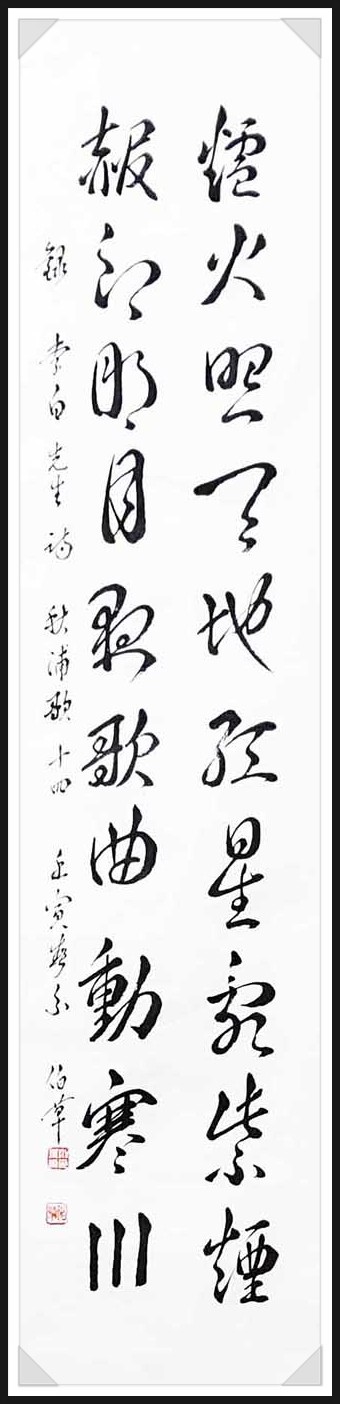 爐火照天地紅星亂紫煙
赧郎明月夜歌曲動寒川
錄 李白先生詩 秋浦歌 十四 壬寅 伯葦